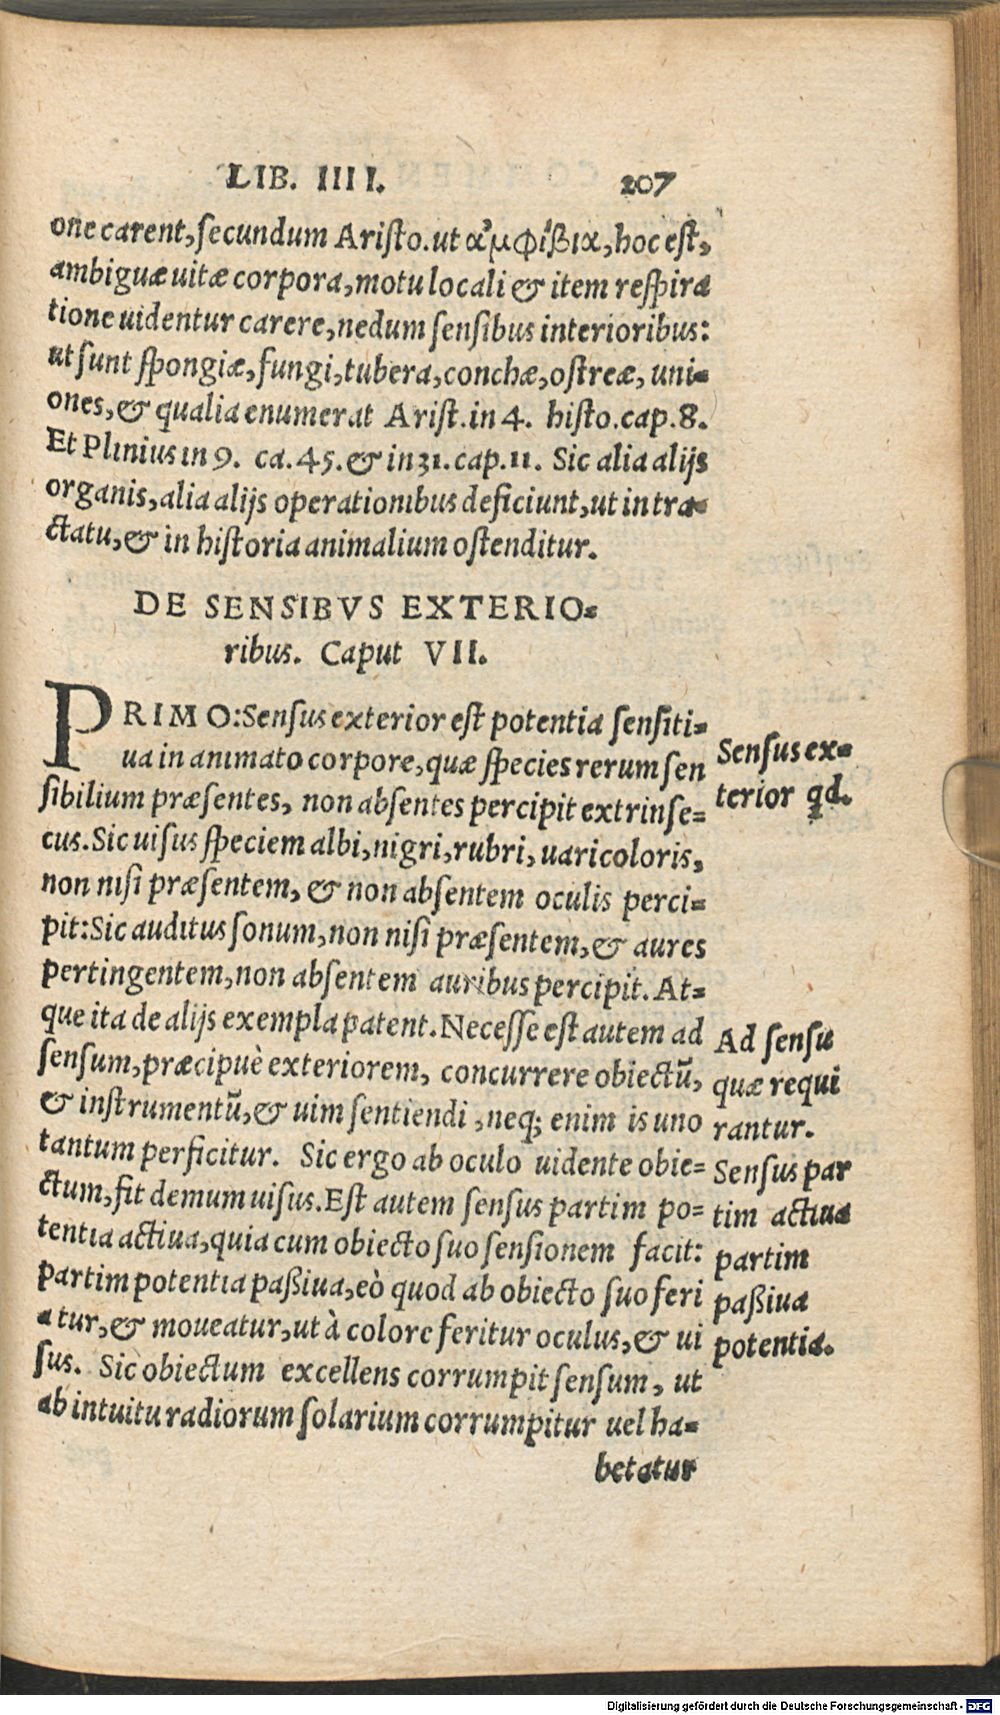 LIB. IIII. 207
one carent, ſecundum Ariſto. ut ἀμφίβια, hoc eſt,
ambiguæ uitæ corpora, motu locali & item reſpira
tione uidentur carere, nedum ſenſibus interioribus:
ut ſunt ſpongiæ, fungi, tubera, conchæ, oſtreæ, uni=
ones, & qualia enumerat Ariſt. in 4. hiſto. cap. 8.
Et Plinius in 9. ca. 45. & in 31. cap. 11. Sic alia alijs
organis, alia alijs operationibus deficiunt, ut in tra=
ctatu, & in hiſtoria animalium oſtenditur.
DE SENSIBVS EXTERIO=
ribus. Caput VII.
PRIMO: Senſus exterior eſt potentia ſenſiti=
ua in animato corpore, quæ ſpecies rerum ſen
ſibilium præſentes, non abſentes percipit extrinſe=
cus. Sic uiſus ſpeciem albi, nigri, rubri, uaricoloris,
non niſi præſentem, & non abſentem oculis perci=
pit: Sic auditus ſonum, non niſi præſentem, & aures
pertingentem, non abſentem auribus percipit. At=
que ita de alijs exempla patent. Neceſſe eſt autem ad
ſenſum, præcipuè exteriorem, concurrere obiectũ,
& inſtrumentũ, & uim ſentiendi, neq; enim is uno
tantum perficitur. Sic ergo ab oculo uidente obie=
ctum, fit demum uiſus. Eſt autem ſenſus partim po=
tentia actiua, quia cum obiecto ſuo ſenſionem facit:
partim potentia paßiua, eò quod ab obiecto ſuo feri
atur, & moueatur, ut à colore feritur oculus, & ui
ſus. Sic obiectum excellens corrumpit ſenſum, ut
ab intuitu radiorum ſolarium corrumpitur uel ha=
betatur
Senſus ex=
terior qd.
Ad ſenſũ
quæ requi
rantur.
Senſus par
tim actiua
partim
paßiua
potentia.
Digitalisierung gefördert durch die Deutsche Forschungsgemeinschaft - DFG